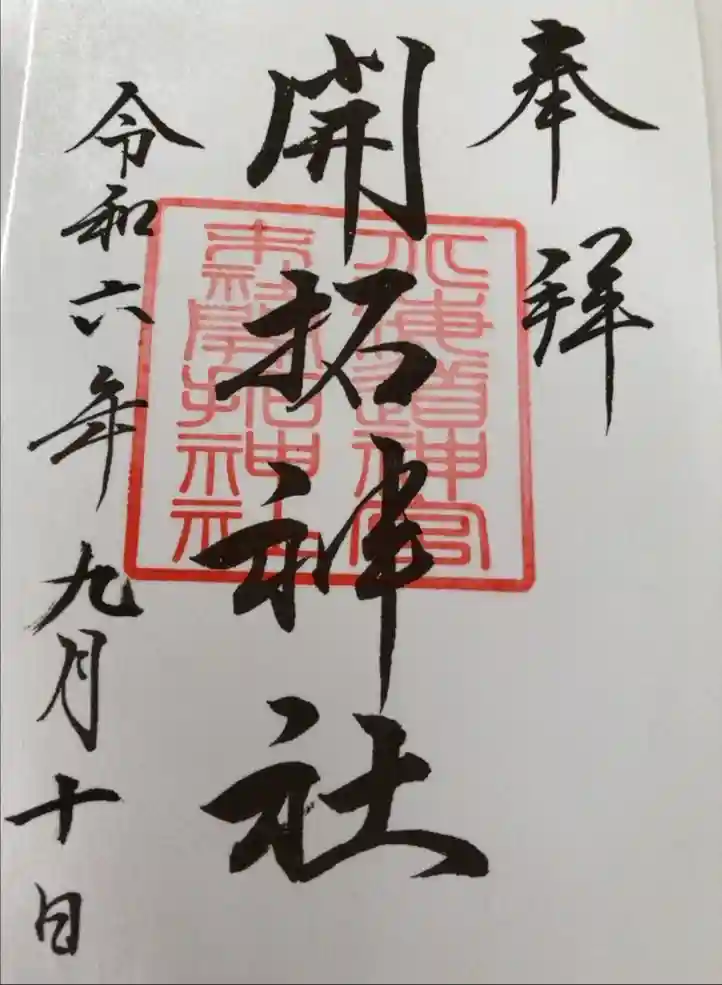 奉拝
開拓神社
北海道神宮
末社開拓神社
令和六年九月十日